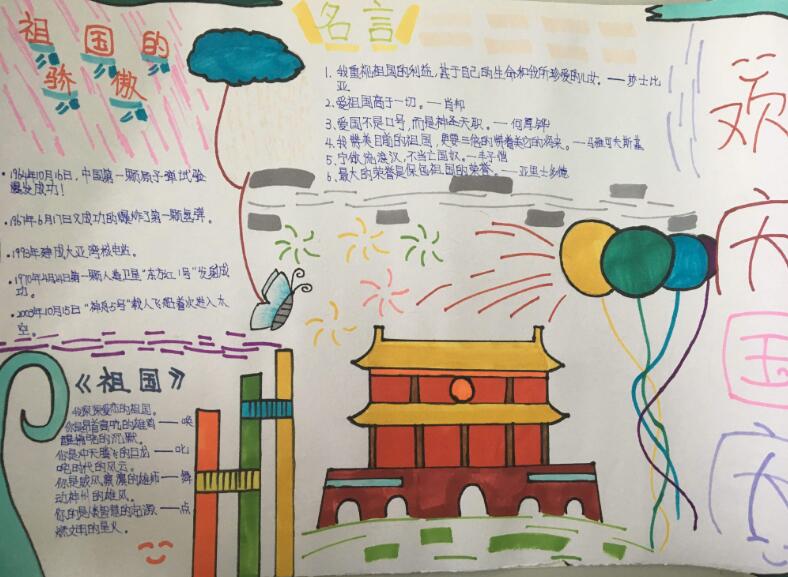 祖国的
骄傲
•1964年10月16日，中国第一颗原子弹试验
爆发成功！
•1967年6月17日又成功的爆炸了第一颗氢弹。
•1993年建成大亚湾核电站。
•1970年4月24日第一颗人造卫星“东方红1号”发射成
功。
•2003年10月15日“神舟5号”载人飞船首次进入太
空。
名言
1、我重视祖国的利益，甚于自己的生命和我所珍爱的儿女。——莎士比
亚
2、爱祖国高于一切。——肖邦
3、爱国不是口号，而是神圣天职。——何厚铧
4、我赞美目前的祖国，更要三倍的赞美它的将来。——马雅可夫斯基
5、宁做流浪汉，不当亡国奴。——丰子恺
6、最大的荣誉是保卫祖国的荣誉。——亚里士多德
《祖国》
我深深爱恋的祖国。
你是昂首高吭的雄鸡——唤
醒拂晓的沉默。
你是冲天腾飞的巨龙——叱
咤时代的风云。
你是威风凛凛的雄狮——舞
动神州的雄风。
你的是智慧的起源——点
燃文明的星火。
欢
庆
国
庆